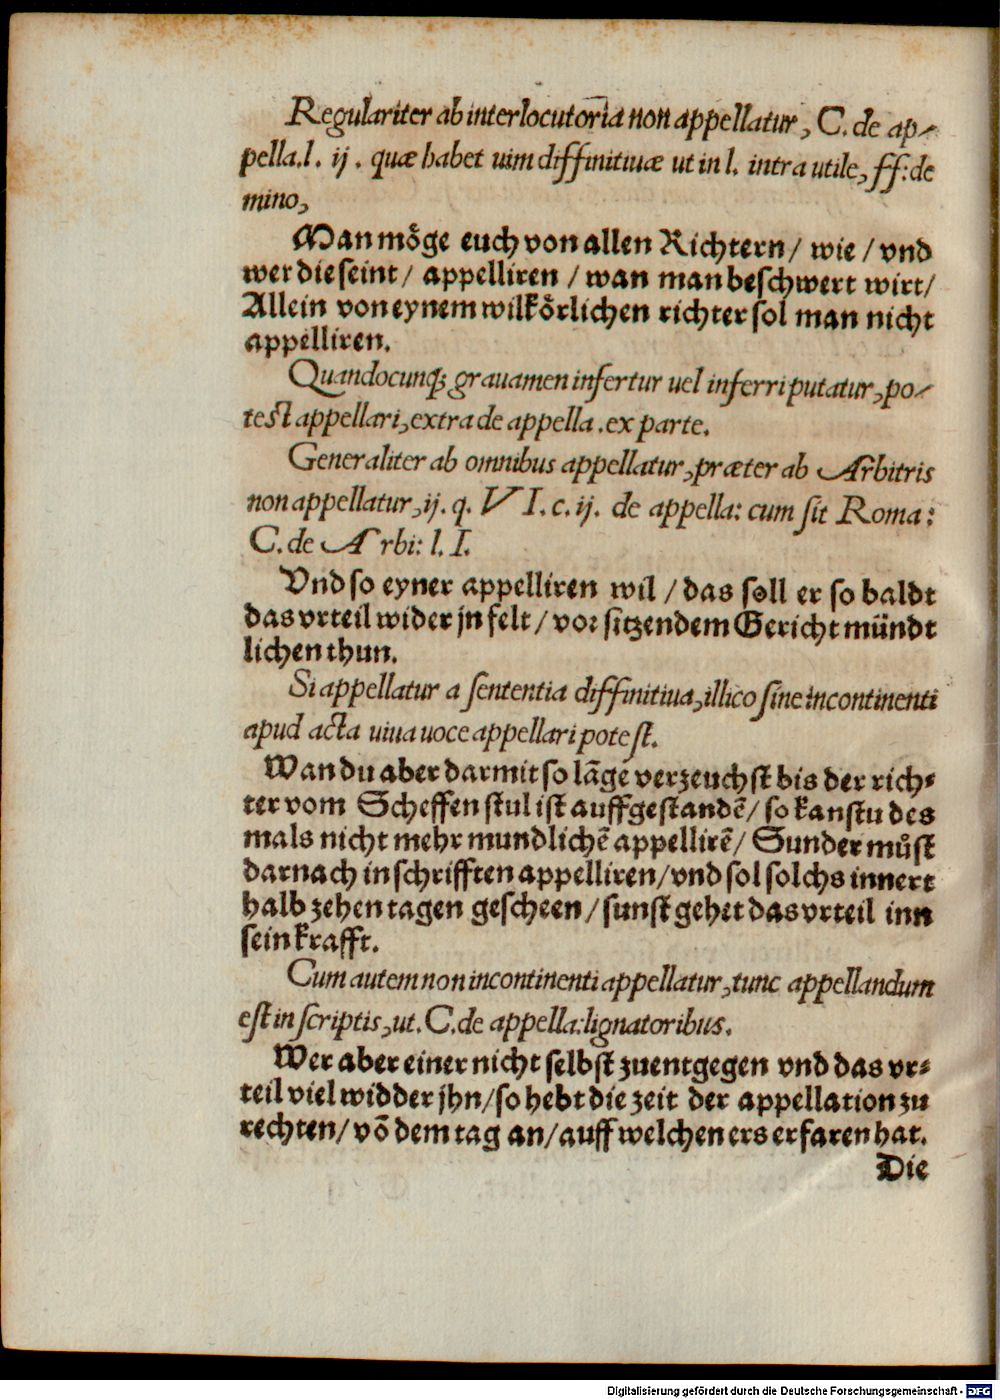 Regulariter ab interlocutoria non appellatur, C. de ap-
pella.l. ij. quæ habet uim diffinitiuæ ut in l. intra utile, ff: de
mino,
Man mőge euch von allen Richtern / wie / vnd
wer die seint / appelliren / wan man beschwert wirt /
Allein von eynem wilkőrlichen richter sol man nicht
appelliren.
Quandocunq; grauamen infertur uel inferri putatur, po-
test appellari, extra de appella .ex parte.
Generaliter ab omnibus appellatur, præter ab Arbitris
non appellatur, ij. q. VI. c. ij. de appella: cum sit Roma:
C. de Arbi: l. I.
Vnd so eyner appelliren wil / das soll er so baldt
das vrteil wider jn felt / vor sitzendem Gericht mündt
lichen thun.
Si appellatur a sententia diffinitiua, illico siue incontinenti
apud acta uiua uoce appellari potest.
Wan du aber darmit so lãge verzeuchst bis der rich-
ter vom Scheffen stul ist auffgestandẽ / so kanstu des
mals nicht mehr mundlichẽ appellirẽ / Sunder můst
darnach in schrifften appelliren / vnd sol solchs innert
halb zehen tagen gescheen / sunst gehet das vrteil inn
sein krafft.
Cum autem non incontinenti appellatur, tunc appellandum
est in scriptis, ut. C. de appella: lignatoribus.
Wer aber einer nicht selbst zuentgegen vnd das vr-
teil viel widder jhn / so hebt die zeit der appellation zu
rechten / võ dem tag an / auff welchen ers erfaren hat.
Die
Digitalisierung gefördert durch die Deutsche Forschungsgemeinschaft - DFG